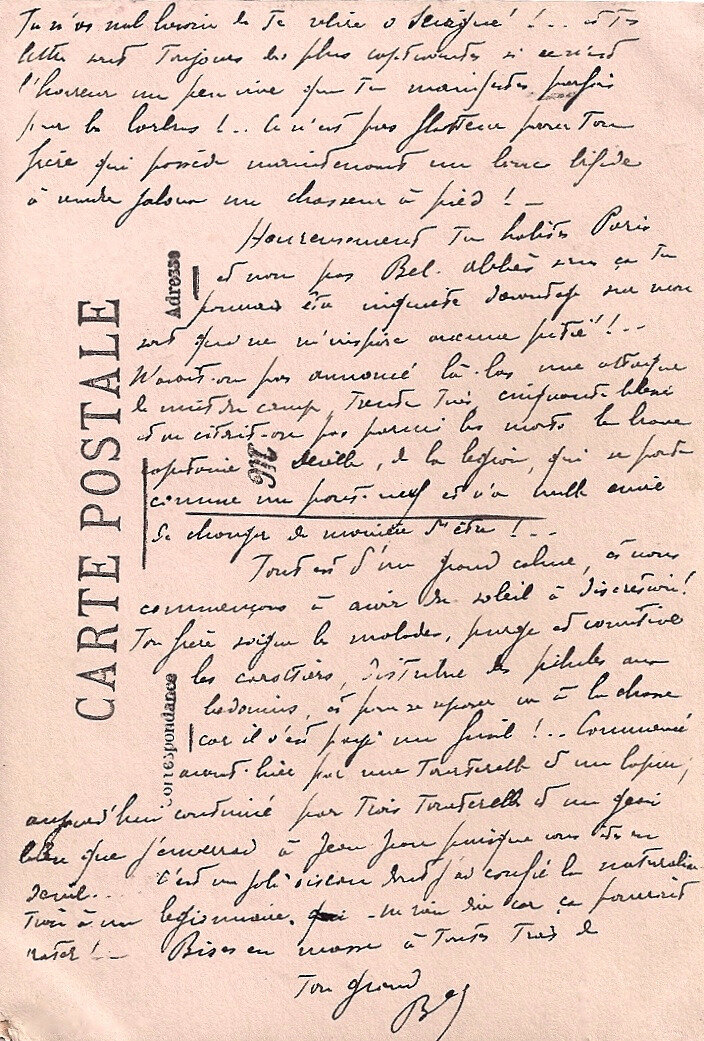 Tu n'as nul besoin de te relire ô Sévigné ! !... et tes
lettres sont toujours des plus captivantes si ce n'est
l'horreur un peu vive que tu manifestes parfois
pour les barbus ! .. Ce n'est pas flatteur pour ton
frère qui possède maintenant un bouc bifide
à rendre jaloux un chasseur à pied ! _
Heureusement tu habites Paris
et non pas Bel-Abbès sans ça tu
pourrais être inquiète davantage sur mon
sort qui ne m'inspire aucune pitié ! ..
N'avait-on pas annoncé là-bas une attaque
de nuit du camp, trente tués cinquante blessés
et ne citait-on pas parmi les morts le brave
capitaine Met, de la légion, qui se porte
comme un pont-neuf et n'a nulle envie
de changer de manière d'être ! ...
Tout est d'un grand calme, et nous
commençons à avoir du soleil à discrétion !
Ton frère soigne les malades, purge et
les carottiers, distribue des pilules aux
bédouins, et pour se reposer va à la chasse
car il s'est payé un fusil ! .. Commencé
avant-hier par une tourterelle et un lapin,
aujourd'hui continué par trois tourterelles et un geai
bleu que j'enverrai à Jean Jean puisque vous êtes en
deuil... C'est un joli oiseau dont j'ai confié la naturalisa-
tion à un légionnaire. n'en rien dire car ça pourrait
rater ! _ Bises en masse à toutes trois de
Ton grand
CARTE POSTALE
Correspondance
Adresse
M